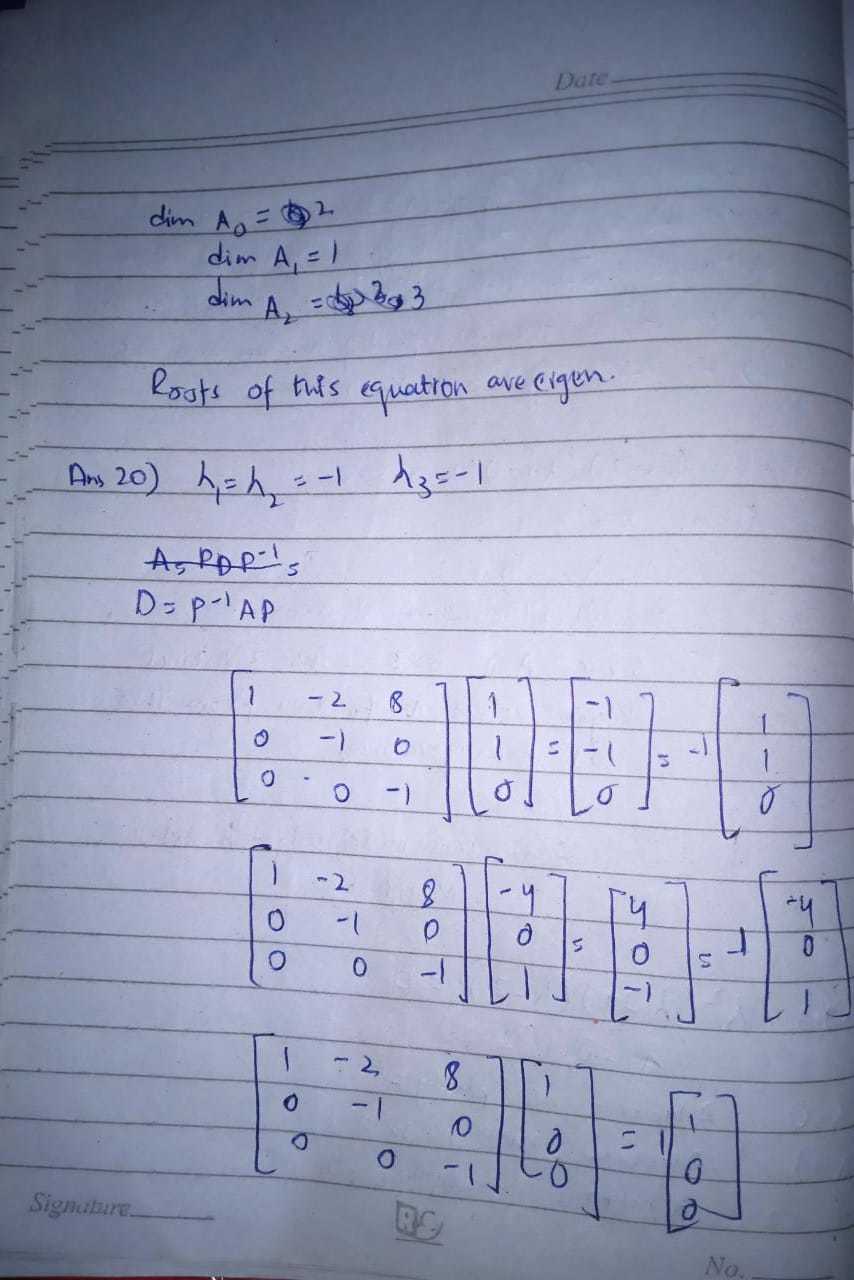 Date
dim A₀ = 2
dim A₁ = 1
dim A₂ = 3
Roots of this equation are eigen.
Ans 20) λ₁ = λ₂ = -1 λ₃ = -1
A = PDP⁻¹ =
D = P⁻¹AP
[1 -2 8; 0 -1 0; 0 0 -1] [1; 1; 0] = [-1; -1; 0] = -1 [1; 1; 0]
[1 -2 8; 0 -1 0; 0 0 -1] [-4; 0; 1] = [4; 0; -1] = -1 [-4; 0; 1]
[1 -2 8; 0 -1 0; 0 0 -1] [1; 0; 0] = 1 [1; 0; 0]
Signature
No.